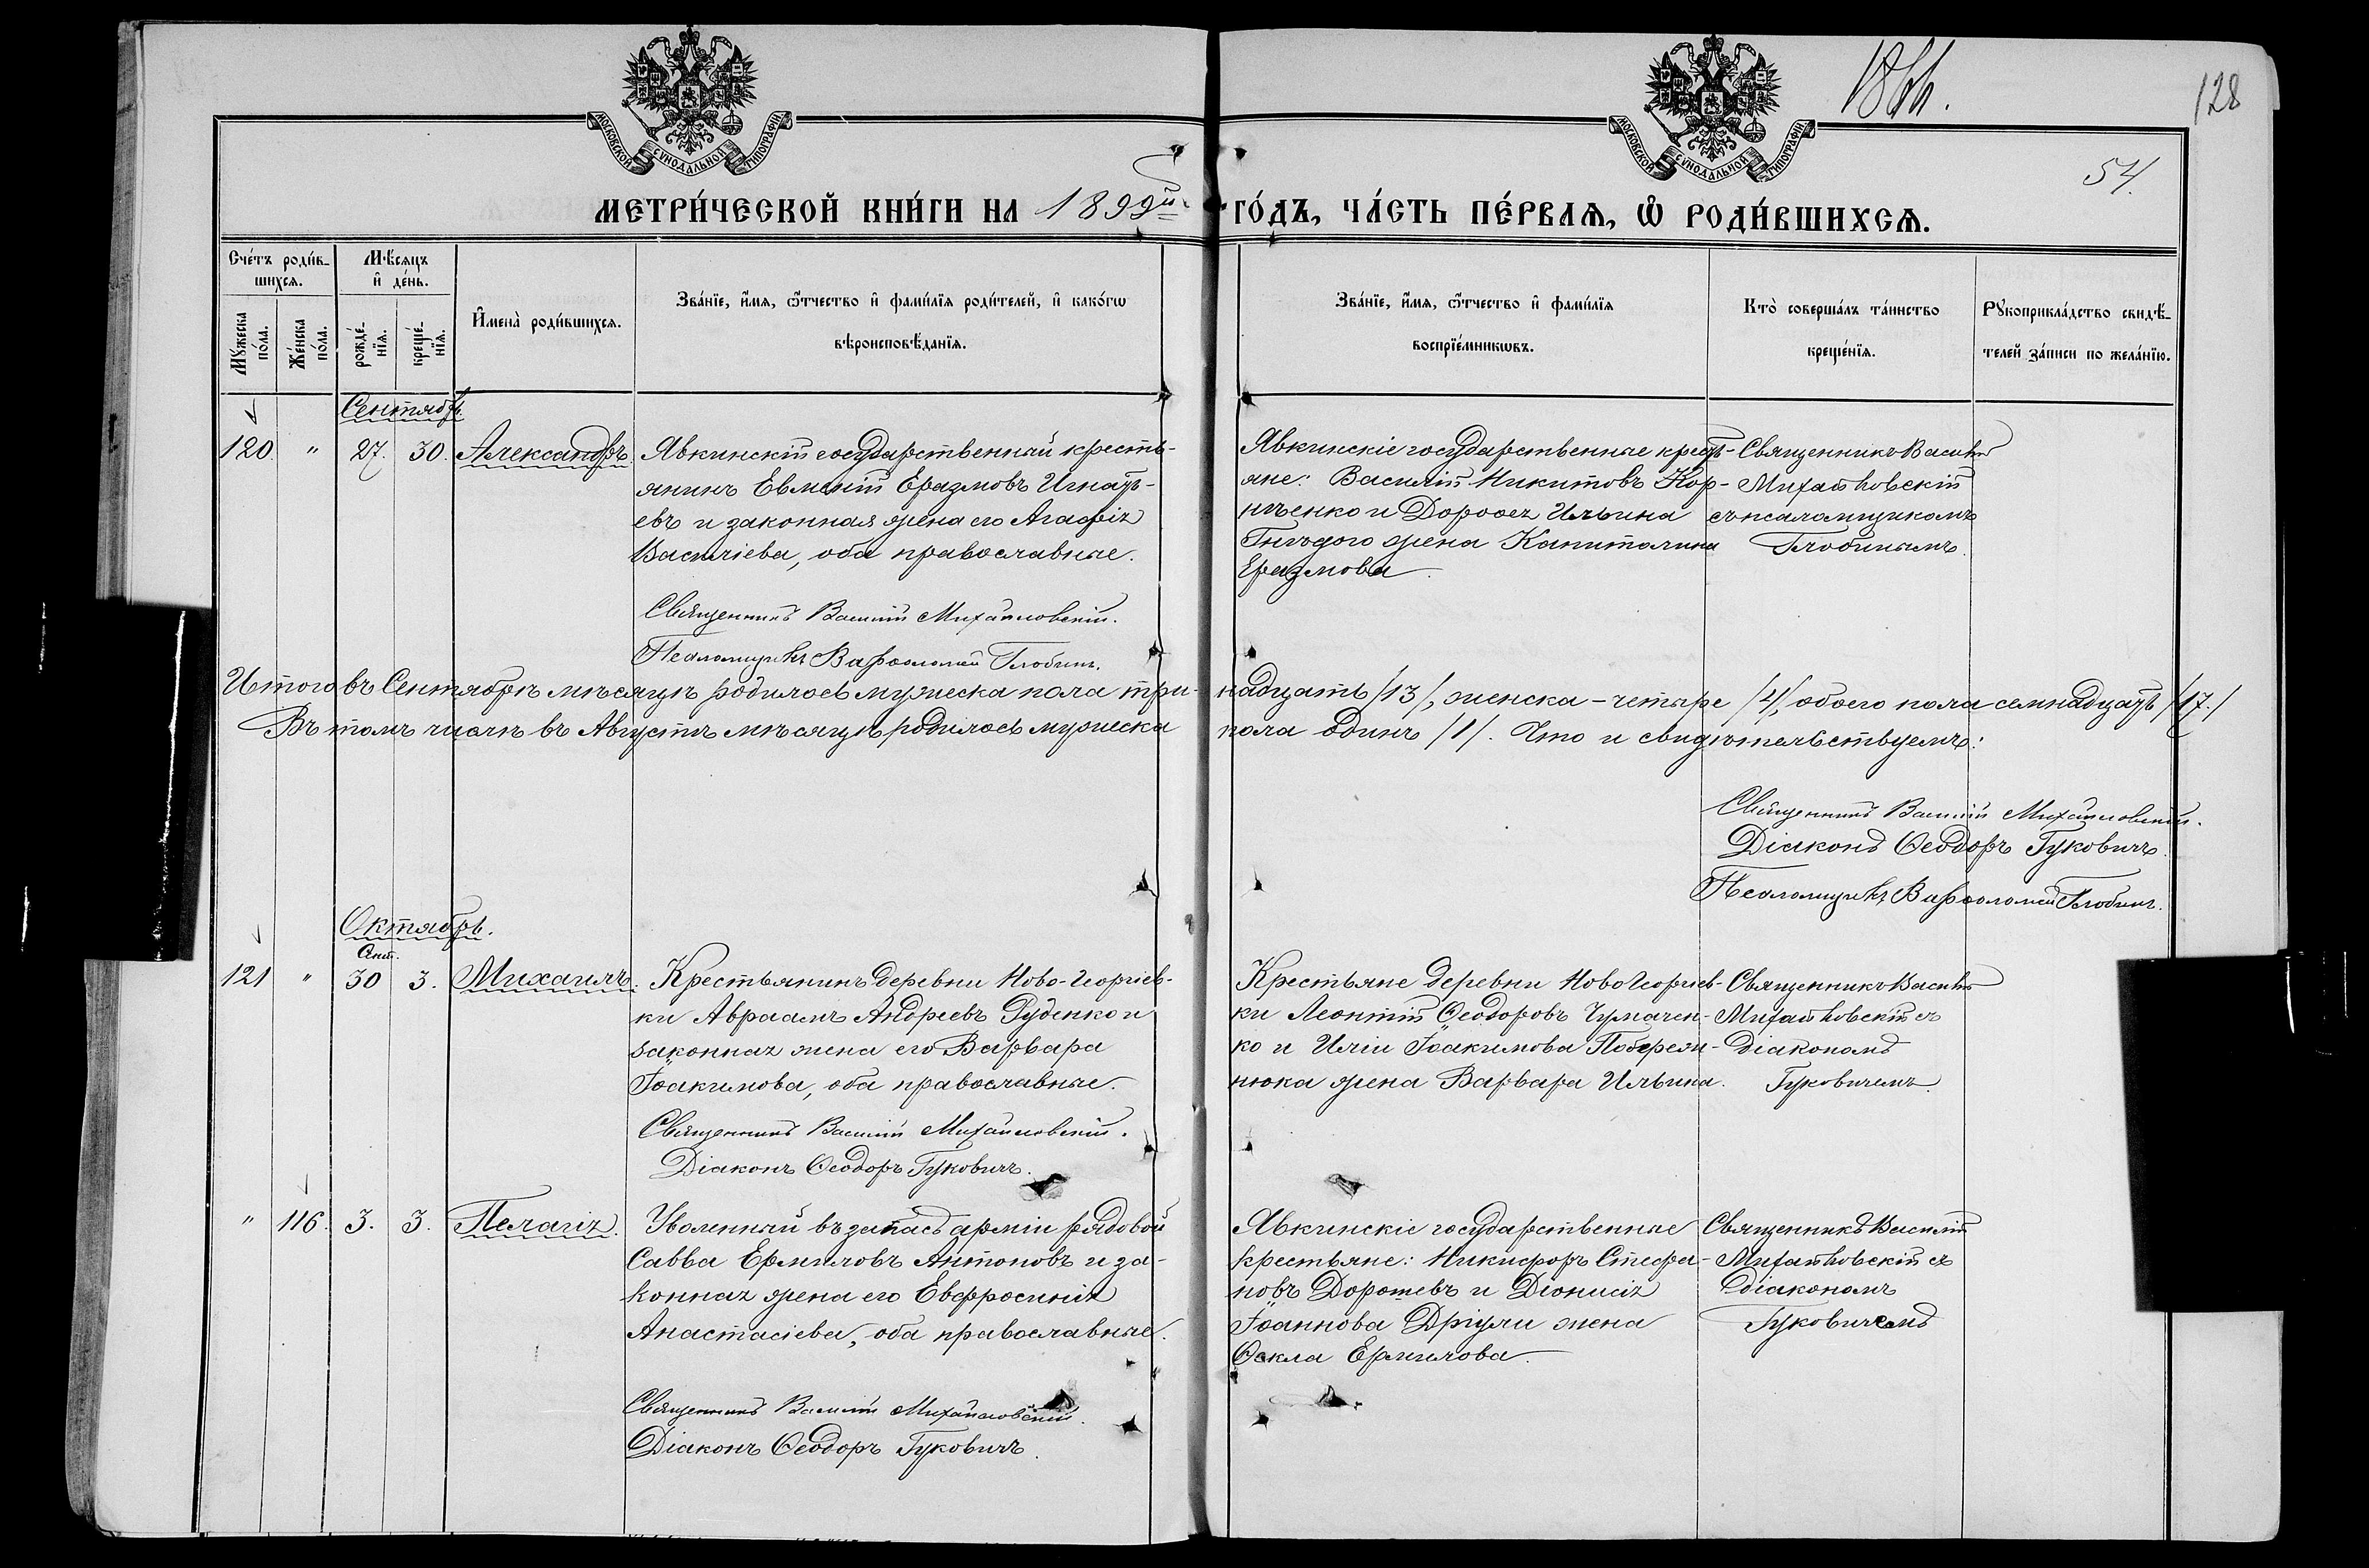 МОСКОВСКОЙ СѴНОДАЛЬНОЙ ТИПОГРАФІИ
МОСКОВСКОЙ СѴНОДАЛЬНОЙ ТИПОГРАФІИ
128
54.
МЕТРИ́ЧЕСКОЙ КНИ́ГИ НА 1899й ГО́ДЪ, ЧА́СТЬ ПЕ́РВАЯ, Ѡ҆ РОДИ́ВШИХСЯ.
Сче́тъ роди́в-
шихся.
Мѣ́сяцъ
и҆ де́нь.
Му́жеска по́ла.
Же́нска по́ла.
рожде́-
нїя.
креще́-
нїя.
И҆мена̀ роди́вшихся.
Зва́нїе, и҆́мя, ѻ҆́тчество и҆ фами́лїя роди́телей, и҆ како́гѡ
вѣроисповѣ́данїя.
Зва́нїе, и҆́мя, ѻ҆́тчество и҆ фами́лїя
воспрїе́мникѡвъ.
Кто̀ соверша́лъ та́инство
креще́нїя.
Рꙋкоприкла́дство свидѣ́-
телей за́писи по жела́нїю.
Сентябрь.
120. " 27. 30. Александръ.
Явкинскій государственный кресть-
янинъ Евменій Еразмовъ Игнать-
евъ и законная жена его Агафія
Василіева, оба православные.
Священникъ Василій Михайловскій.
Псаломщикъ Варѳоломей Глобинъ.
Явкинскіе государственные кресть-
яне: Василій Никитовъ Кор-
нѣенко и Дороѳея Ильина
жена Капитолина
Еразмова.
Священникъ Василій
Михайловскій
съ псаломщикомъ
Глобинымъ.
Итого въ Сентябрѣ мѣсяцѣ родилось мужеска пола три-надцать /13/, женска - четыре /4/, обоего пола семнадцать /17./
Въ томъ числѣ въ Августѣ мѣсяцѣ родилось мужеска пола одинъ /1/. Что и свидѣтельствуемъ:
Священникъ Василій Михайловскій.
Діаконъ Ѳеодоръ Гуковичъ.
Псаломщикъ Варѳоломей Глобинъ.
Октябрь.
Сент.
121 " 30 3. Михаилъ.
Крестьянинъ деревни Ново-Георгіев-
ки Авраамъ Андреевъ Руденко и
законная жена его Варвара
Іоакимова, оба православные.
Священникъ Василій Михайловскій.
Діаконъ Ѳеодоръ Гуковичъ.
Крестьяне деревни НовоГеоргіев-
ки Леонтій Ѳеодоровъ Чумачен-
ко и Иліи Іоакимова Побереж-
нюка жена Варвара Ильина.
Священникъ Василій
Михайловскій съ
діакономъ
Гуковичемъ.
" 116. 3. 3. Пелагія.
Уволенный въ запасъ арміи рядовой
Савва Ермиловъ Антоновъ и за-
конная жена его Евфросинія
Анастасіева, оба православные.
Священникъ Василій Михайловскій.
Діаконъ Ѳеодоръ Гуковичъ.
Явкинскіе государственные
крестьяне: Никифоръ Стефа-
новъ Дорошевъ и Діонисія
Іоаннова Дригули жена
Ѳекла Ермилова.
Священникъ Василій
Михайловскій съ
діакономъ
Гуковичемъ